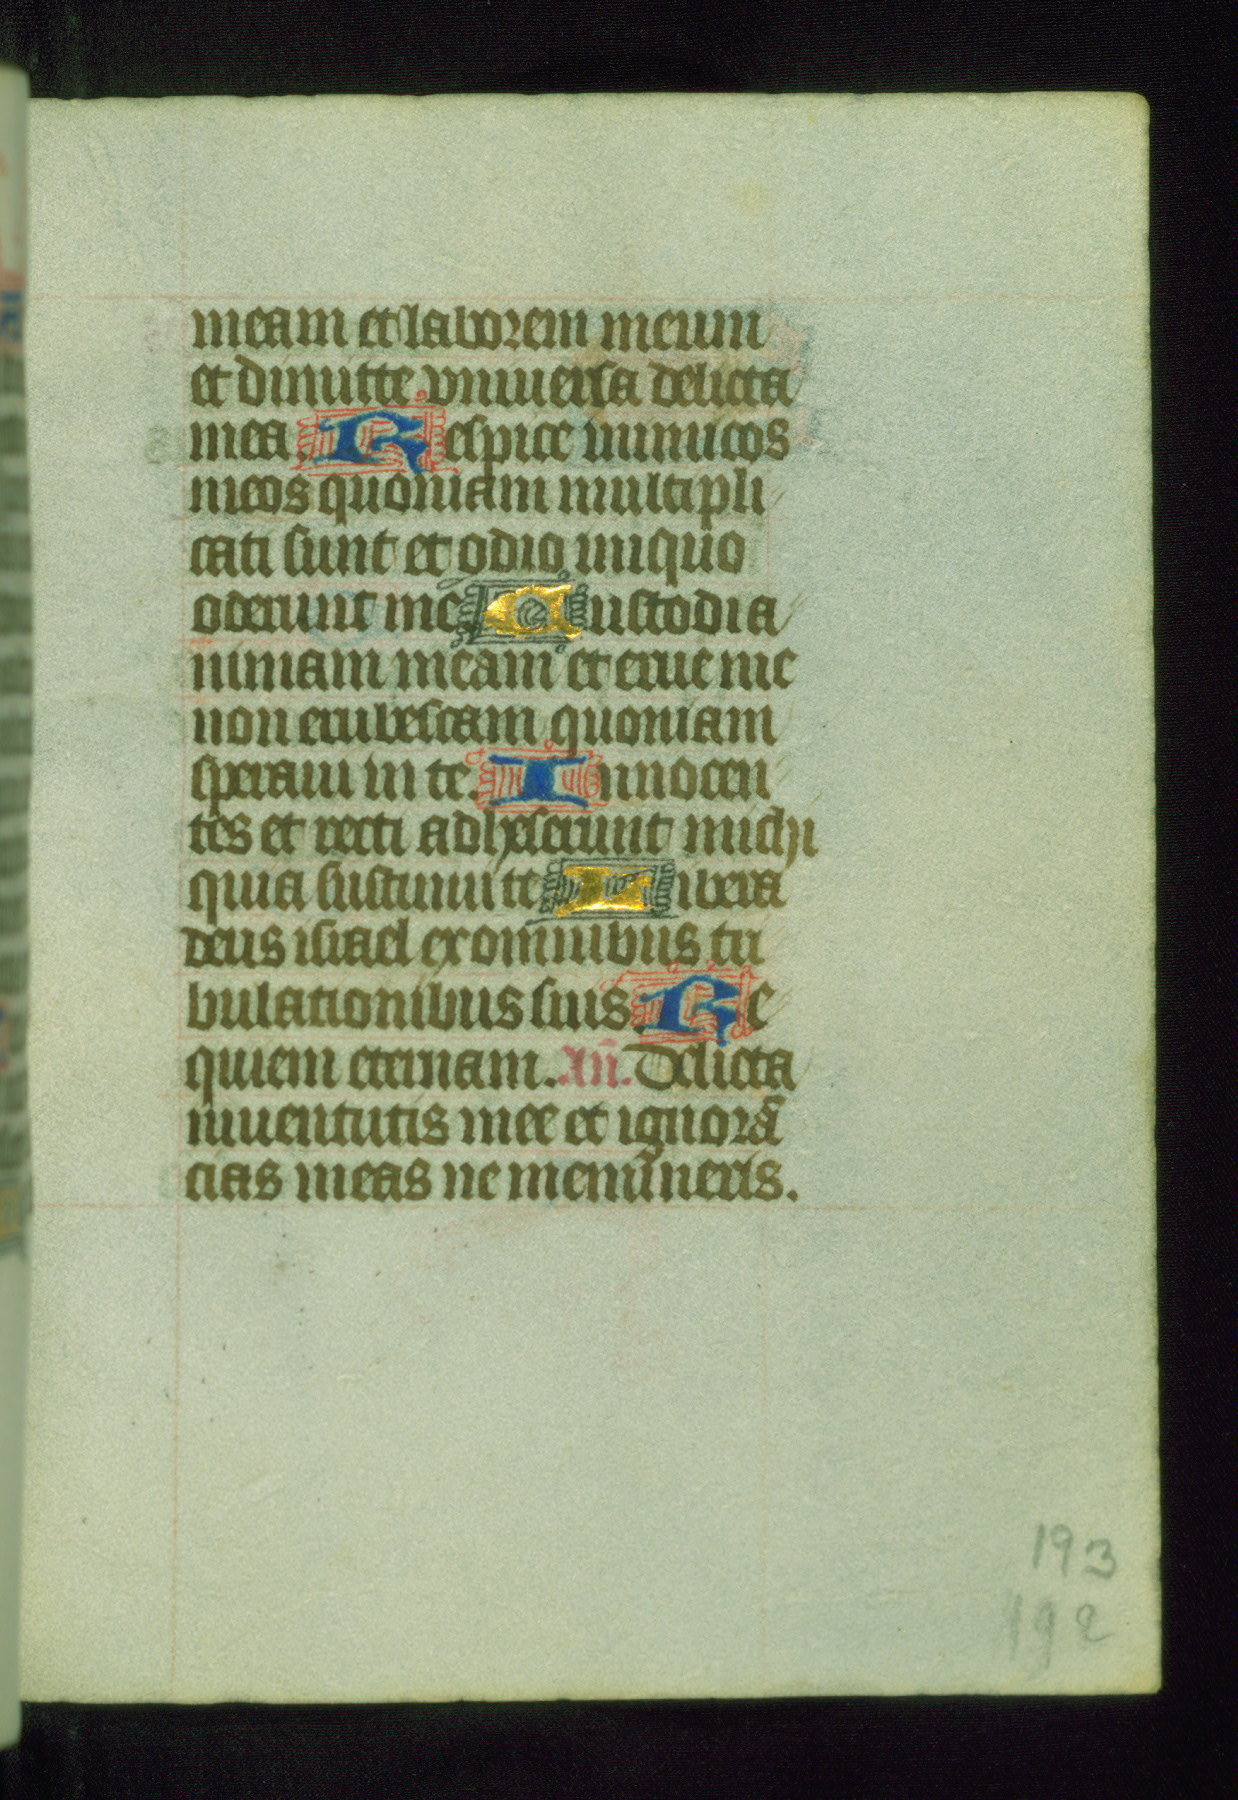 meam et laborem meum
et dimitte vniuersa delicta
mea. Respice inimicos
meos quoniam multipli
cati sunt et odio iniquo
oderunt me Custodi a
nimam meam et erue me
non erubescam quoniam
speraui in te. Innocen
tes et recti adheserunt michi
quia sustinui te Libera
deus israel ex omnibus tri
bulationibus suis. Re
quiem eternam. Añ. Delicta
iuuentutis mee et ignorã
cias meas ne memīneris.
193
192